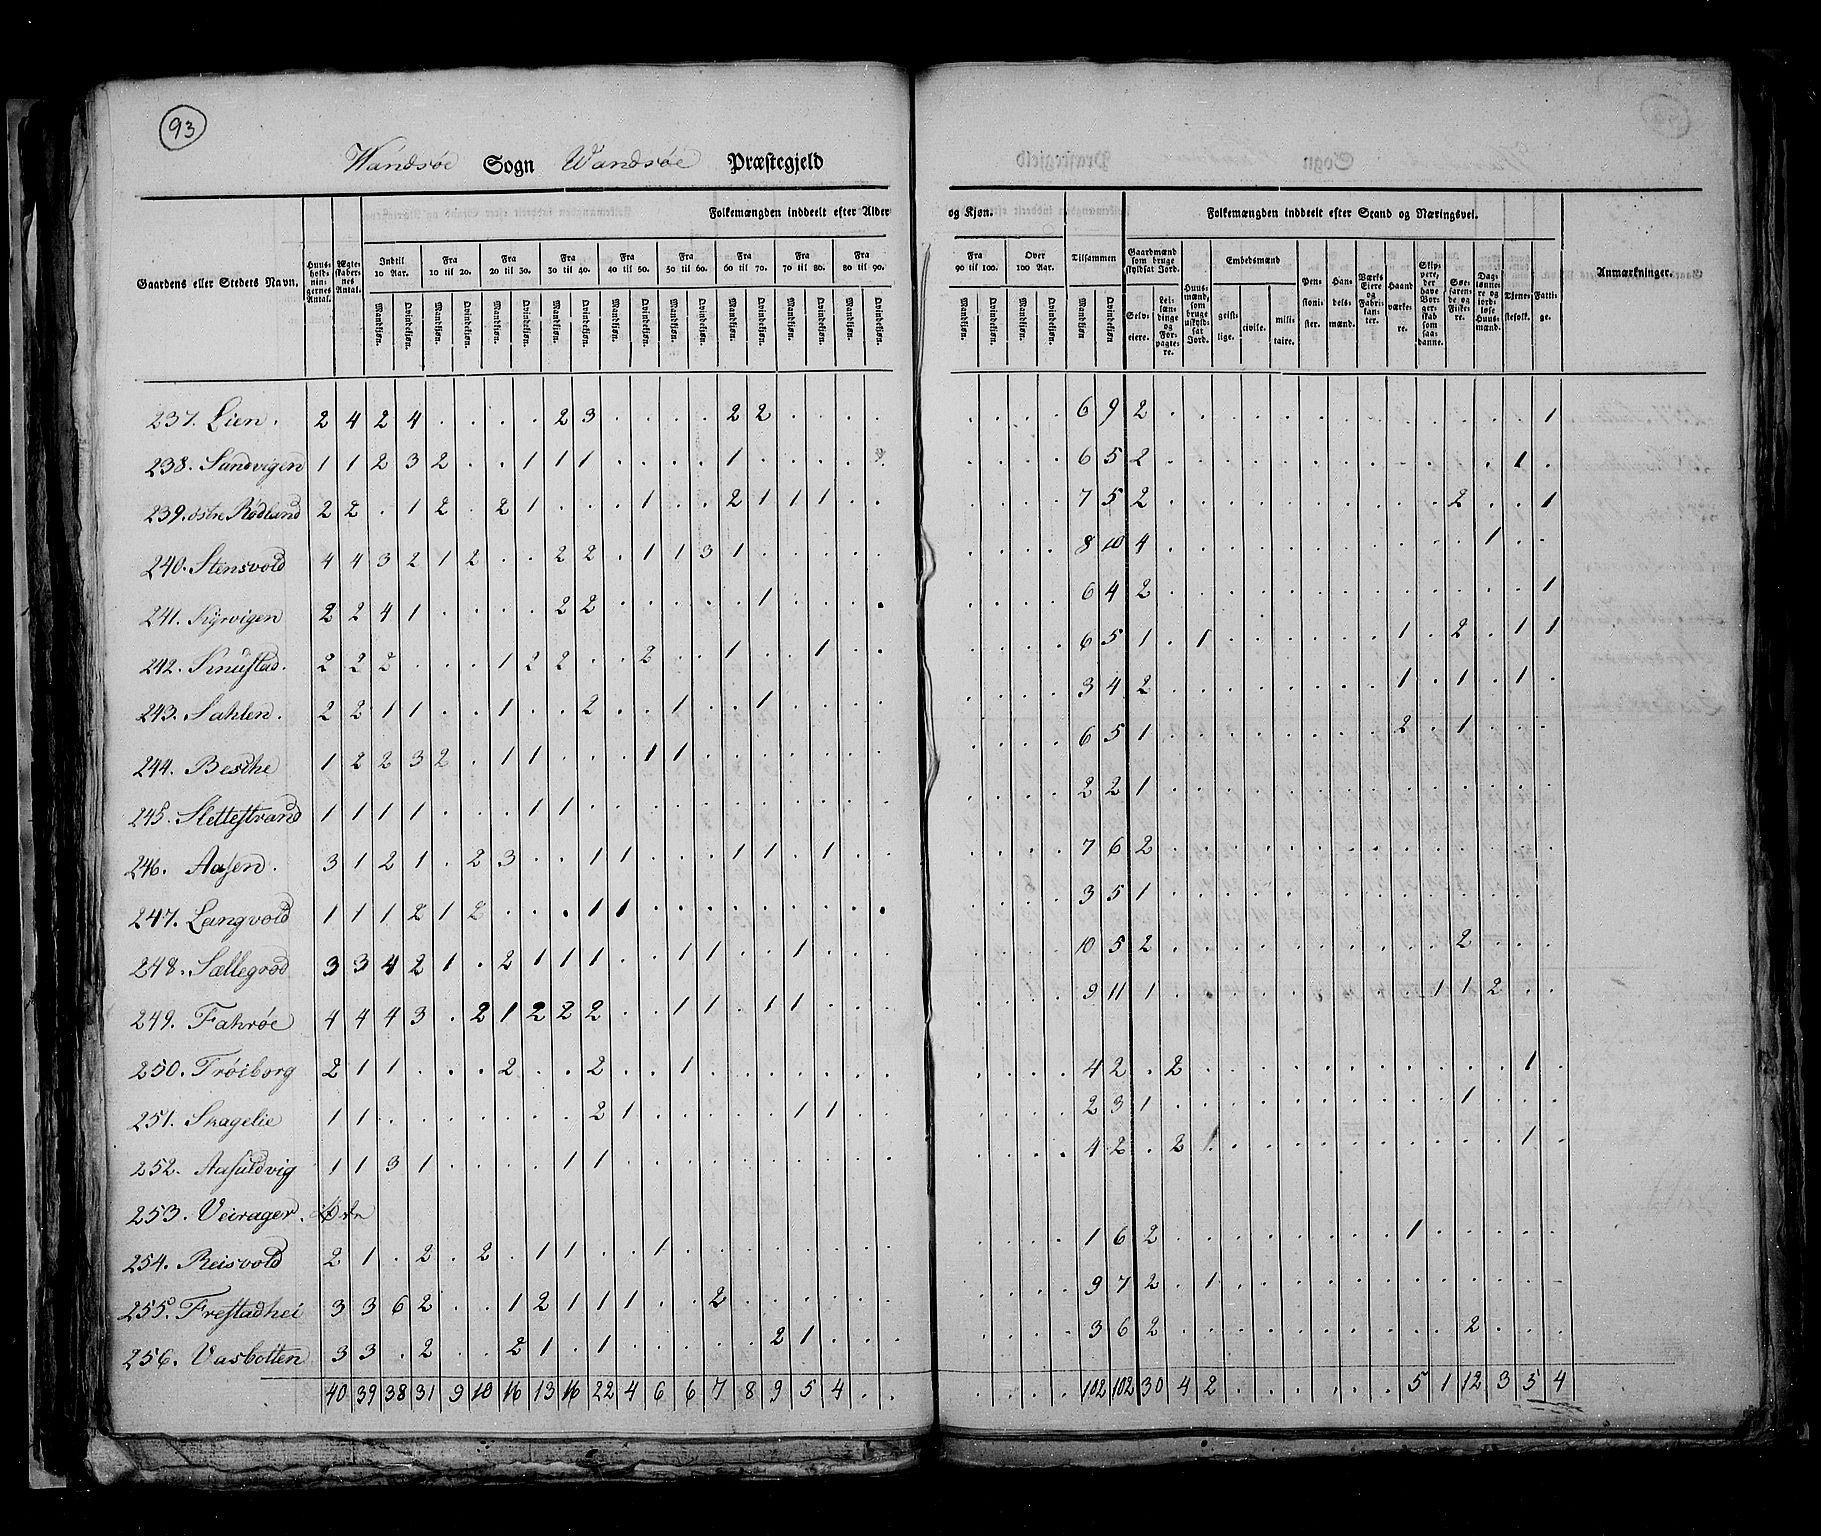 93
Wandsøe Sogn Wandsøe Præstegjeld
Gaardens eller Stedets Navn. | Huusholdningernes Antal. | Ægteskabernes Antal. | Folkemængden inddeelt efter Alder og Kjøn. | Folkemængden inddeelt efter Stand og Næringsvei. | Anmærkninger.
Indtil 10 Aar. | Fra 10 til 20. | Fra 20 til 30. | Fra 30 til 40. | Fra 40 til 50. | Fra 50 til 60. | Fra 60 til 70. | Fra 70 til 80. | Fra 80 til 90. | Fra 90 til 100. | Over 100 Aar. | Tilsammen | Gaardmænd som bruge skyldsat Jord. | Huusmænd, som bruge uskyldsat Jord. | Embedsmænd | Pensionister. | Handelsmænd. | Værks Eiere og Fabrikanter. | Haandværkere. | Skippere, der have Borgerskab som saadanne. | Søefarende og Fiskere. | Daglønnere og jordløse Huusmænd. | Tjenestefolk. | Fattige.
Mandkjøn. | Qvindekjøn. | Selveiere. | Leilændinge og Forpagtere. | geistlige. | civile. | militaire.
237. Lien. 2 4 2 4 . . . . 2 3 . . . . 2 2 . . . . . . . . 6 9 2 . . . . . . . . . . . . . 1
238. Sandvigen 1 1 2 3 2 . . 1 1 1 . . . . 1 . . . . . . . . 6 5 2 . . . . . . . . . . . . 1 .
239. østre Rødland 2 2 . 1 2 . 2 1 . . . 1 . . 2 1 1 1 . . . . . . 7 5 2 . . . . . . . . . . 2 . . 1
240. Stensvold 4 4 3 2 1 2 . . 2 2 . 1 1 3 1 . . . . . . . . . 8 10 4 . . . . . . . . . . . 1 . .
241. Kyrvigen 2 2 4 1 . . . . 2 2 . . . . . 1 . . . . . . . . 6 4 2 . . . . . . . . . . . . . 1
242. Knustad. 2 2 2 . . . 1 2 2 . . 2 . . 1 . . 1 . . . . . . 6 5 1 . 1 . . . . . . 1 . 2 . 1 1
243. Sahlen. 2 2 1 1 . . 1 . . 2 . . 1 . . 1 . . . . . . . . 3 4 2 . . . . . . . . 1 . 1 . 1 .
244. Besche 1 2 2 3 2 . 1 1 . . . 1 1 . . . . . . . . . . . 6 5 1 . . . . . . . . 2 . 1 . . .
245. Slettestrand 1 1 1 1 . . . 1 1 . . . . . . . . . . . . . . . 2 2 1 . . . . . . . . . . . . . .
246. Aasen. 3 1 2 1 . 2 3 . . 1 1 . . . 1 1 . 1 . . . . . . 7 6 2 . . . . . . . . . . . . . .
247. Langvold 1 1 1 2 1 2 . . . 1 1 . . . . . . . . . . . . . 3 5 1 . . . . . . . . . . . . . .
248. Sællegrod 3 3 4 2 1 . 2 1 1 1 . . 1 1 . . 1 . . . . . . . 10 5 2 . . . . . . . . . . 2 . . .
249. Fahrøe 4 4 4 3 . 2 1 2 2 2 . . 1 1 . 1 1 . . . . . . . 9 11 1 . . . . . . . . . 1 1 2 . .
250. Trøiborg 2 1 1 . . . 2 . . 2 . . 1 . . . . . . . . . . . 4 2 . 2 . . . . . . . . . . . 1 .
251. Skagelie 1 1 . . . . . . . 2 1 . . . . . 1 1 . . . . . . 2 3 1 . . . . . . . . . . 1 . . .
252. Aasuldvig 1 1 3 1 . . . . 1 1 . . . . . . . . . . . . . . 4 2 . 2 1 . . . . . . . . . . 1 .
253. Veirager.
254. Reisvold 2 1 . 2 . 2 . 1 1 . . 1 . . . . . . . . . . . . 1 6 2 . . . . . . . . 1 . . . . .
255. Frestadhei 3 3 6 2 . . 1 2 1 1 1 . . 2 . . . . . . . . . . 9 7 2 . 1 . . . . . . . . . . . .
256. Vasbotten 3 3 . 2 . . 2 1 . 1 . . . . . 2 1 . . . . . . . 3 6 2 . . . . . . . . . . 2 . . .
40 39 38 31 9 10 16 13 16 22 4 6 6 7 8 9 5 4 . . . . . . 102 102 30 4 2 . . . . . . 5 1 12 3 5 4